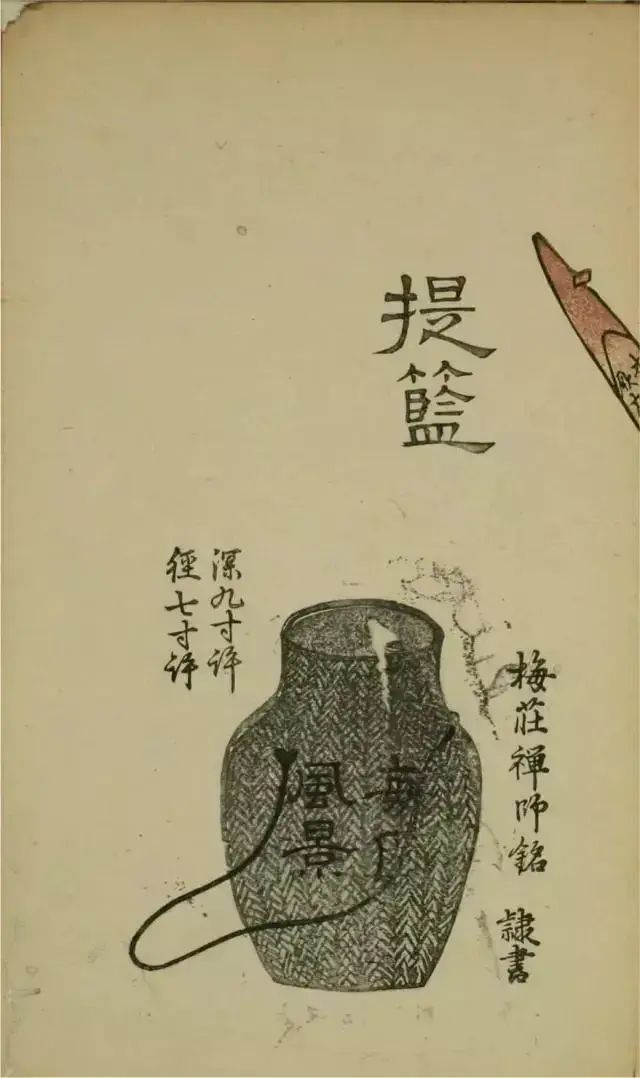 提籃
梅莊禪師銘 隷書
無
風景
深九寸許
徑七寸許